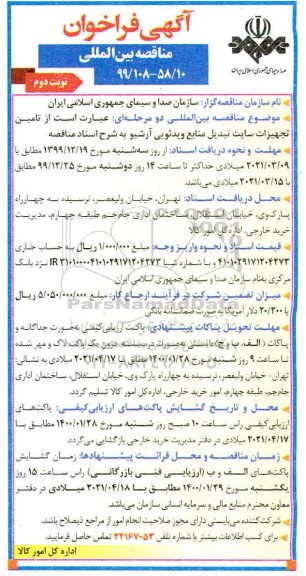 آگهی فراخوان
مناقصه بین‌المللی
۹۹/۱۰۸-۵۸/۱۰
نوبت دوم
صدا و سیمای جمهوری اسلامی ایران
نام سازمان مناقصه‌گزار: سازمان صدا و سیمای جمهوری اسلامی ایران
موضوع مناقصه بین‌المللی دو مرحله‌ای: عبارت است از تامین
تجهیزات سایت تبدیل منابع ویدئویی آرشیو به شرح اسناد مناقصه
مهلت و نحوه دریافت اسناد: از روز سه‌شنبه مورخ ۱۳۹۹/۱۲/۱۹ مطابق با
۲۰۲۱/۰۳/۰۹ میلادی حداکثر تا ساعت ۱۴ روز دوشنبه مورخ ۱۳۹۹/۱۲/۲۵ مطابق
با ۲۰۲۱/۰۳/۱۵ میلادی می‌باشد.
محل دریافت اسناد: تهران، خیابان ولیعصر، نرسیده به چهارراه
پارک‌وی، خیابان استقلال، ساختمان اداری جام‌جم طبقه چهارم، مدیریت
خرید خارجی اداره کل امور کالا
قیمت اسناد و نحوه واریز وجه: مبلغ ۱/۰۰۰/۰۰۰ ریال به حساب جاری
مرکزی بنام سازمان صدا و سیمای جمهوری اسلامی ایران
میزان تضمین شرکت در فرآیند ارجاع کار: مبلغ ۵/۰۵۰/۰۰۰/۰۰۰ ریال
یا ۲۰/۳۰۰ دلار آمریکا به صورت ضمانتنامه بانکی
مهلت تحویل پاکات پیشنهادی: پاکت ارزیابی کیفی به صورت جداگانه و
پاکات (الف، ب و ج) بایستی به صورت دربسته درون یک پاکت لاک و مهر شده
تا ساعت ۹ روز شنبه مورخ ۱۴۰۰/۰۱/۲۸ مطابق با ۲۰۲۱/۰۴/۱۷ میلادی به نشانی:
تهران- خیابان ولیعصر، نرسیده به چهارراه پارک وی، خیابان استقلال، ساختمان اداری
جام‌جم، طبقه چهارم، امور خرید خارجی، اداره کل امور کالا تسلیم گردد
محل و تاریخ گشایش پاکت‌های ارزیابی‌کیفی: پاکت‌های
ارزیابی کیفی راس ساعت ۱۰ صبح روز شنبه مورخ ۱۴۰۰/۰۱/۲۸ مطابق با
۲۰۲۱/۰۴/۱۷ میلادی در دفتر مدیریت خرید خارجی بازگشایی می‌گردد.
زمان مناقصه و محل قرائت پیشنهادها: زمان گشایش
پاکت‌های الف و ب (ارزیابی فنی بازرگانی) راس ساعت ۱۵ روز
یکشنبه مورخ ۱۴۰۰/۰۱/۲۹ مطابق با ۲۰۲۱/۰۴/۱۸ میلادی در دفتر
معاون محترم منابع مالی و سرمایه انسانی سازمان می‌باشد.
شرکت‌کننده می‌بایستی دارای مجوز صلاحیت انجام امور از مراجع ذیصلاح باشد.
برای کسب اطلاعات بیشتر با شماره تلفن ۲۲۱۶۷۰۵۳ تماس حاصل فرمایید.
اداره کل امور کالا